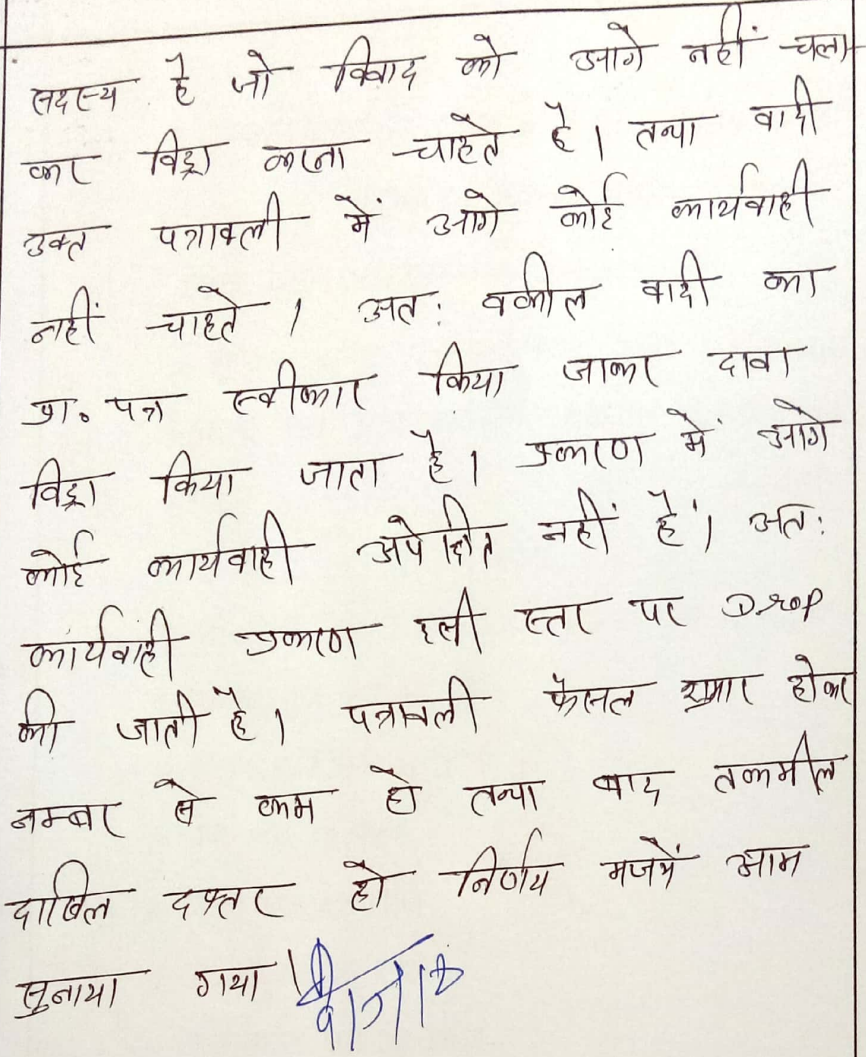 सदस्य है जो विवाद को आगे नहीं चला
कर विड्रा करना चाहते है। तथा वादी
उक्त पत्रावली में आगे कोई कार्यवाही
नहीं चाहते। अतः वकील वादी का
प्रा० पत्र स्वीकार किया जाकर दावा
विड्रा किया जाता है। प्रकरण में आगे
कोई कार्यवाही अपेक्षित नहीं है। अतः
कार्यवाही प्रकरण इसी स्तर पर Drop
की जाती है। पत्रावली फैसल शुमार होकर
नम्बर से कम हो तथा बाद तकमील
दाखिल दफ्तर हो निर्णय मजमें आम
सुनाया गया।